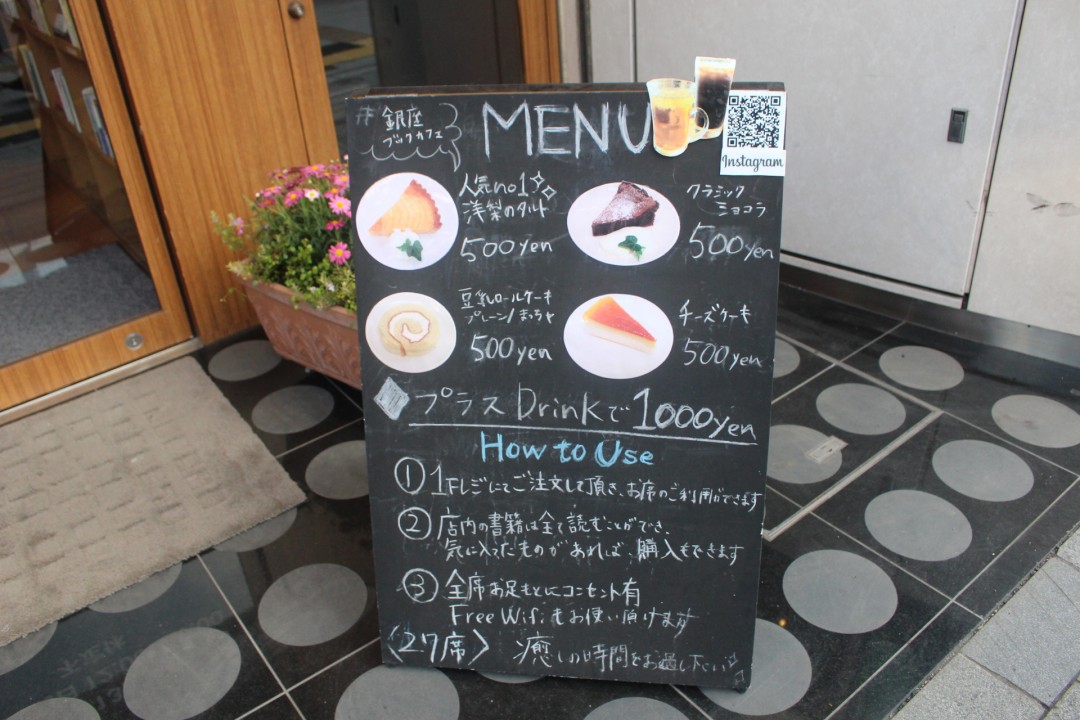 #銀座
ブックカフェ
MENU
Instagram
人気no1
洋梨のタルト
500yen
クラシック
ショコラ
500yen
豆乳ロールケーキ
プレーン/まっちゃ
500yen
チーズケーキ
500yen
プラスDrinkで1000yen
How to Use
① 1Fレジにてご注文して頂き、お席のご利用ができます
② 店内の書籍は全て読むことができ、
気に入ったものがあれば、購入もできます
③ 全席お足もとにコンセント有
Free Wifiもお使い頂けます
〈27席〉 癒しの時間をお過し下さい